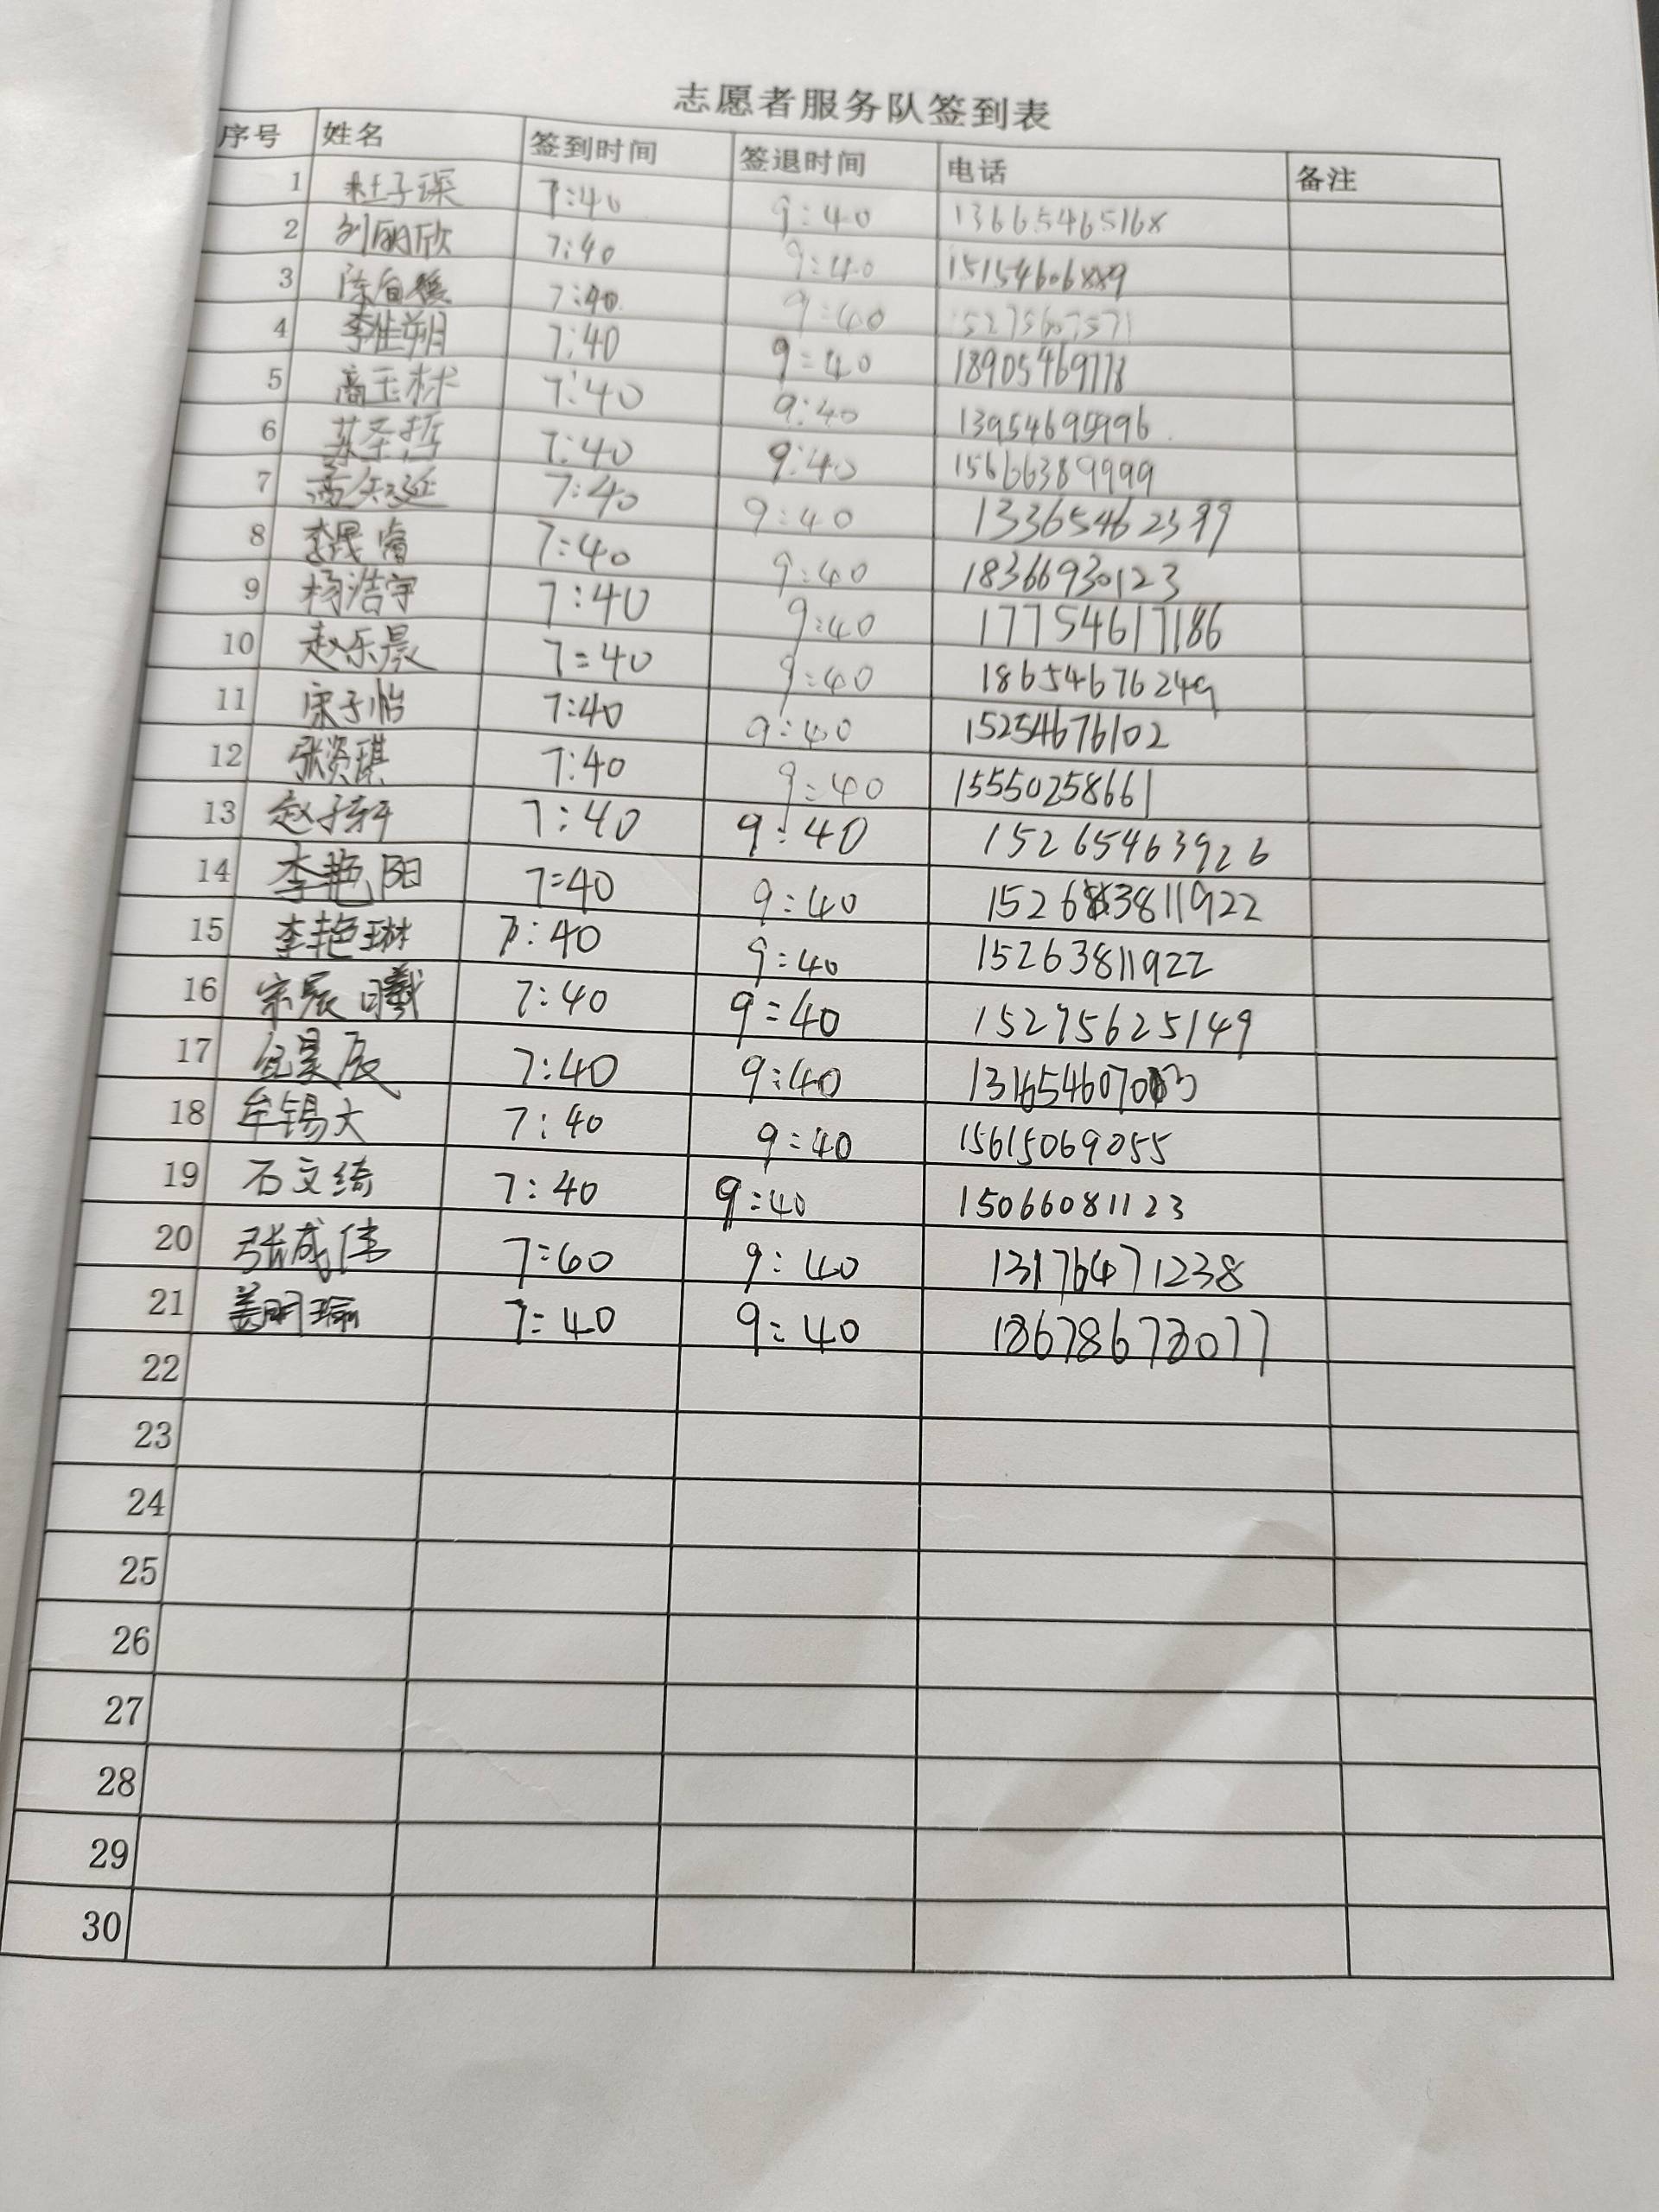 志愿者服务队签到表
序号 姓名 签到时间 签退时间 电话 备注
1 杜子琛 7:40 9:40 13665465168
2 刘丽欣 7:40 9:40 15154606889
3 7:40 9:40
4 李佳朔 7:40 9:40 18905469778
5 高玉林 7:40 9:40 13954695996
6 苏圣哲 7:40 9:40 15666389999
7 高知延 7:40 9:40 13365462399
8 李晟睿 7:40 9:40 18366930123
9 杨浩宇 7:40 9:40 17754617186
10 赵乐晨 7:40 9:40 18654676249
11 宋子怡 7:40 9:40 15254676102
12 张资琪 7:40 9:40 15550258661
13 赵子轩 7:40 9:40 15265463926
14 李艳阳 7:40 9:40
15 李艳琳 7:40 9:40 15263811922
16 宋辰曦 7:40 9:40 15275625149
17 昊辰 7:40 9:40
18 牟锡大 7:40 9:40 15615069055
19 石文绮 7:40 9:40 15066081123
20 张成伟 7:60 9:40 13176471238
21 姜明瑜 7:40 9:40 18678673077
22
23
24
25
26
27
28
29
30